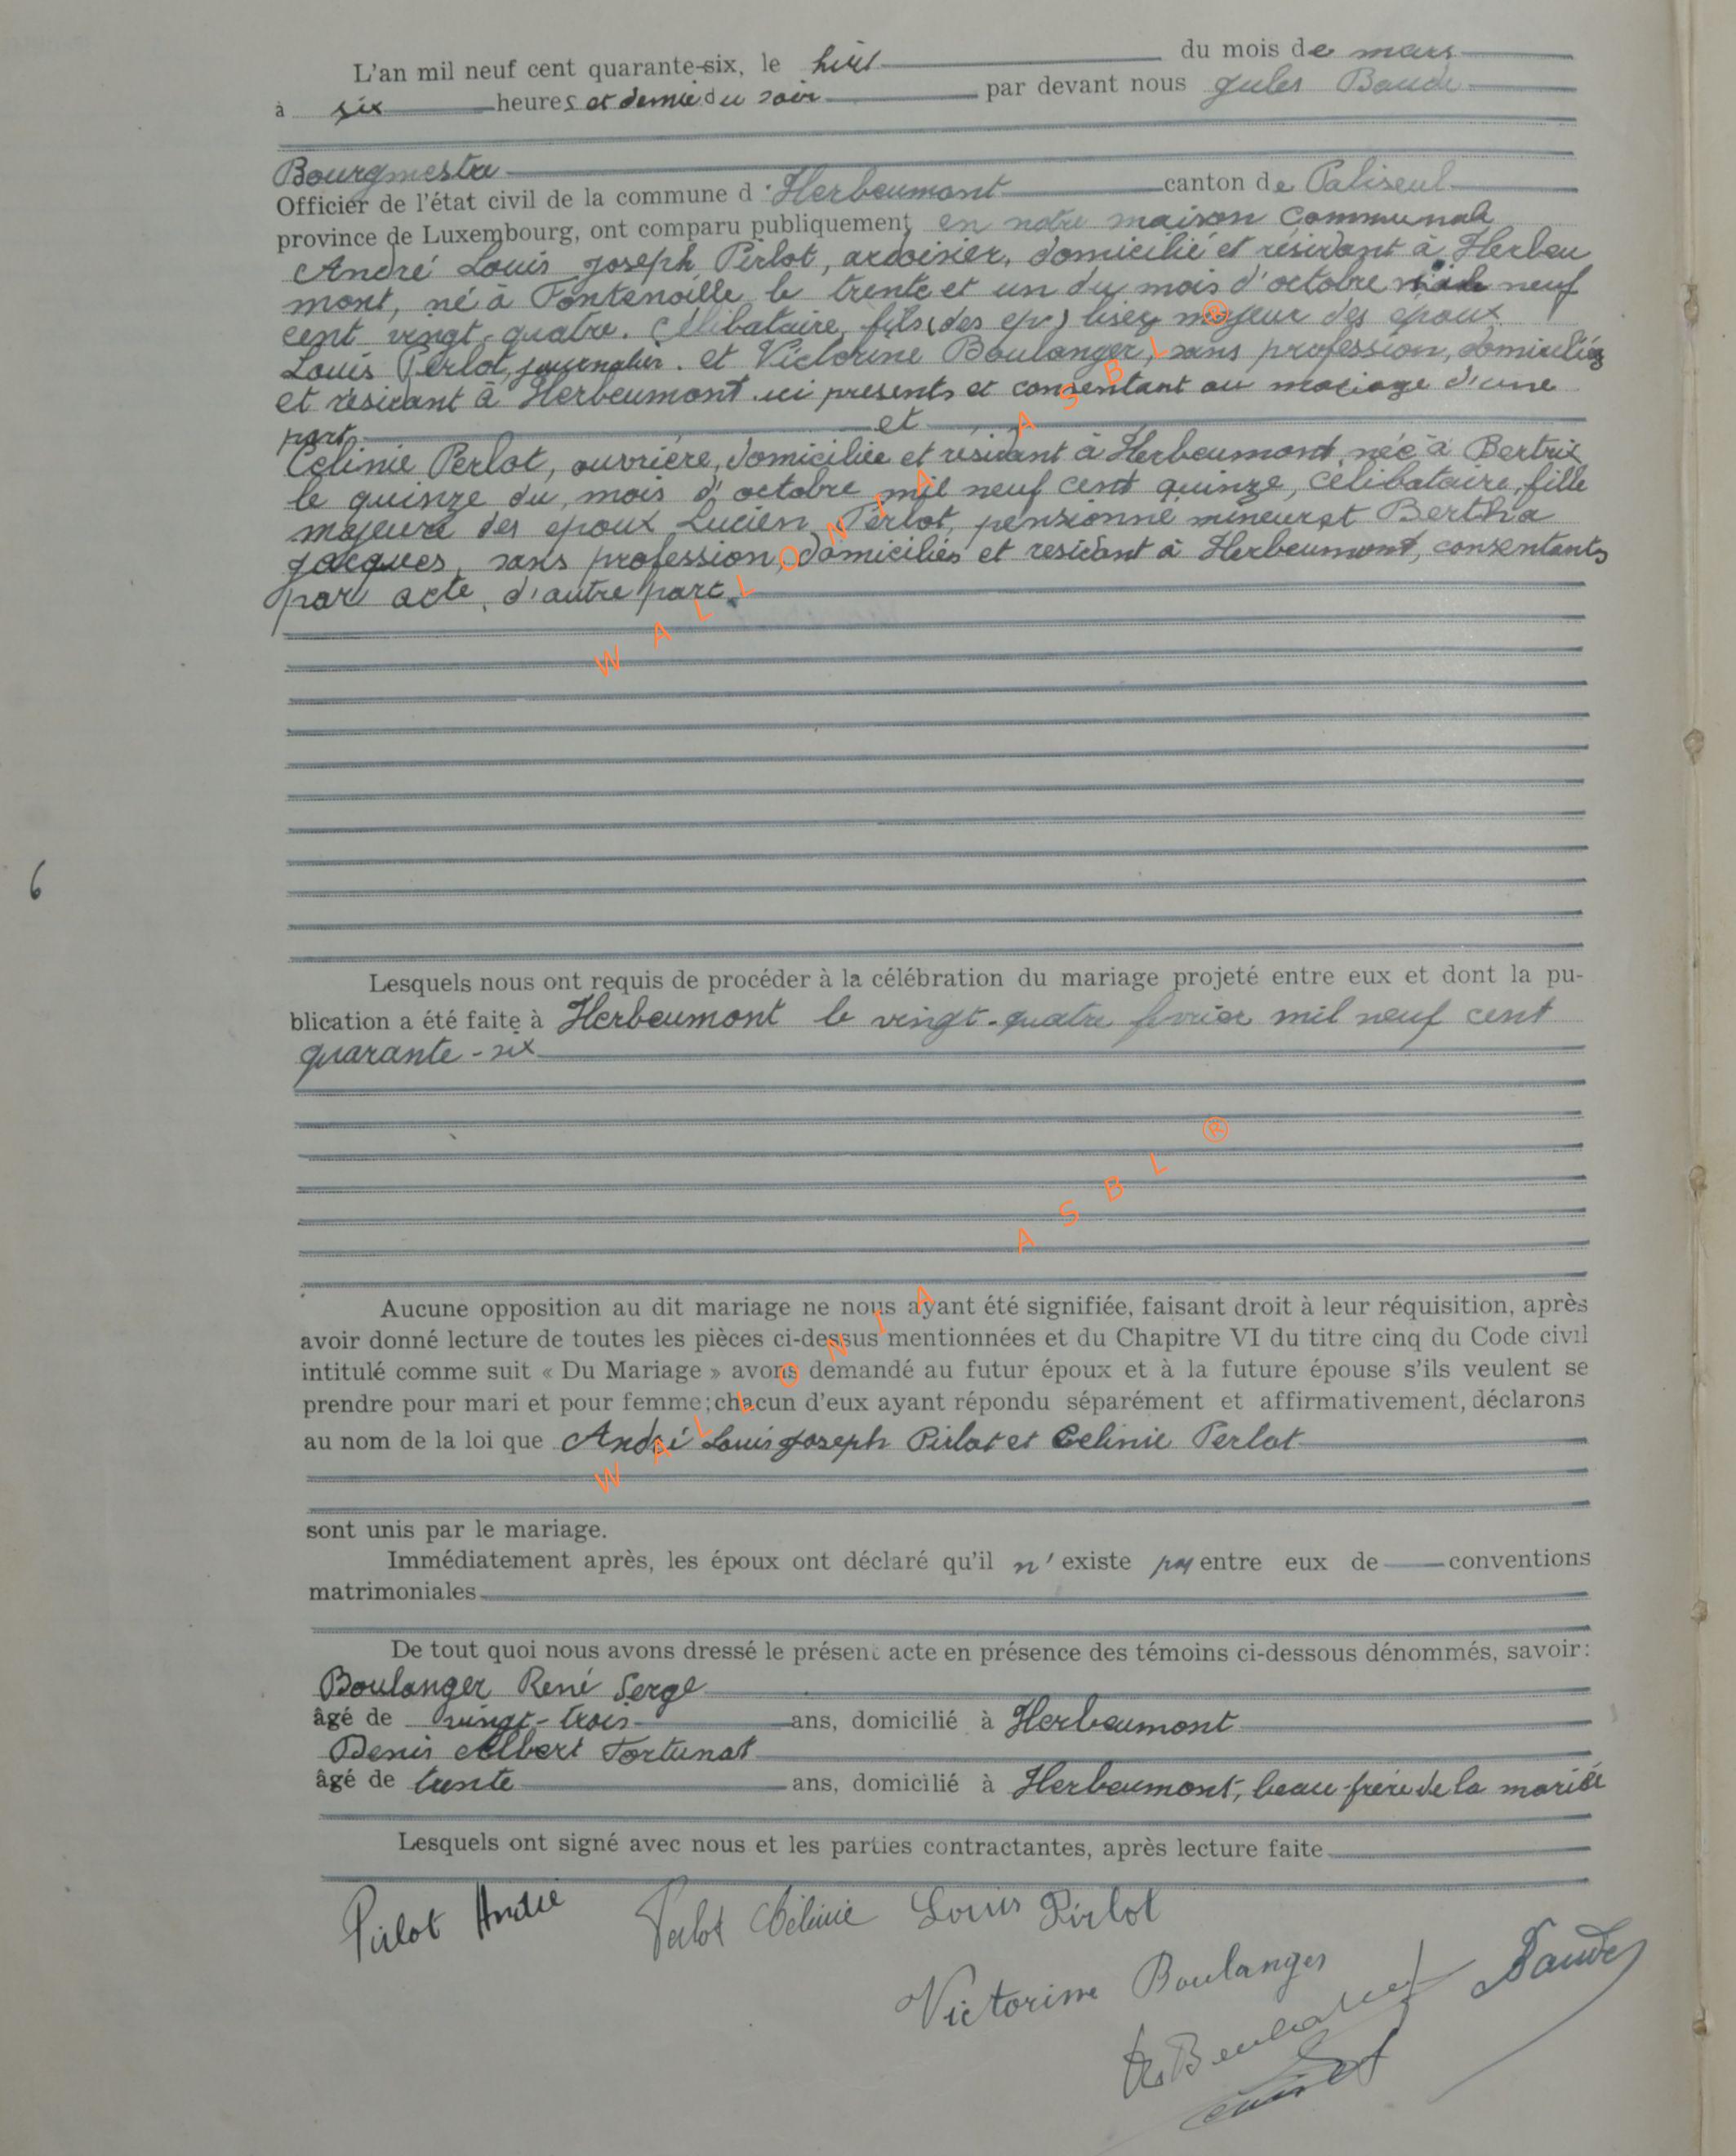 L'an mil neuf cent quarante-six, le huit du mois de mars
à six heures et demie du soir par devant nous Jules Baude
Bourgmestre
Officier de l'état civil de la commune d'Herbeumont canton de Paliseul
province de Luxembourg, ont comparu publiquement en notre maison communale
André Louis Joseph Pirlot, ardoisier, domicilié et résidant à Herbeu
mont, né à Fontenoille le trente et un du mois d'octobre mil neuf
cent vingt-quatre. Célibataire, fils (des ep.) lisez majeur des époux
Louis Pirlot, journalier. et Victorine Boulanger, sans profession, domiciliés
et résidant à Herbeumont ici présents et consentant au mariage d'une
part
et
Célinie Perlot, ouvrière, domiciliée et résidant à Herbeumont née à Bertrix
le quinze du mois d'octobre mil neuf cent quinze, célibataire, fille
majeure des époux Lucien Perlot, pensionné mineur et Bertha
Jacques, sans profession, domiciliés et résidant à Herbeumont, consentants
par acte, d'autre part.
WALLONIA ASBL ®
6
Lesquels nous ont requis de procéder à la célébration du mariage projeté entre eux et dont la pu-
blication a été faite à Herbeumont le vingt-quatre février mil neuf cent
quarante-six
WALLONIA ASBL ®
Aucune opposition au dit mariage ne nous ayant été signifiée, faisant droit à leur réquisition, après
avoir donné lecture de toutes les pièces ci-dessus mentionnées et du Chapitre VI du titre cinq du Code civil
intitulé comme suit « Du Mariage » avons demandé au futur époux et à la future épouse s'ils veulent se
prendre pour mari et pour femme; chacun d'eux ayant répondu séparément et affirmativement, déclarons
au nom de la loi que André Louis Joseph Pirlot et Celinie Perlot
sont unis par le mariage.
Immédiatement après, les époux ont déclaré qu'il n'existe pas entre eux de conventions
matrimoniales
De tout quoi nous avons dressé le présent acte en présence des témoins ci-dessous dénommés, savoir:
Boulanger René Serge
âgé de vingt-trois ans, domicilié à Herbeumont
Denis Albert Fortunat
âgé de trente ans, domicilié à Herbeumont, beau-frère de la mariée
Lesquels ont signé avec nous et les parties contractantes, après lecture faite
Pirlot André Perlot Célinie Louis Pirlot
Victorine Boulanger Baude